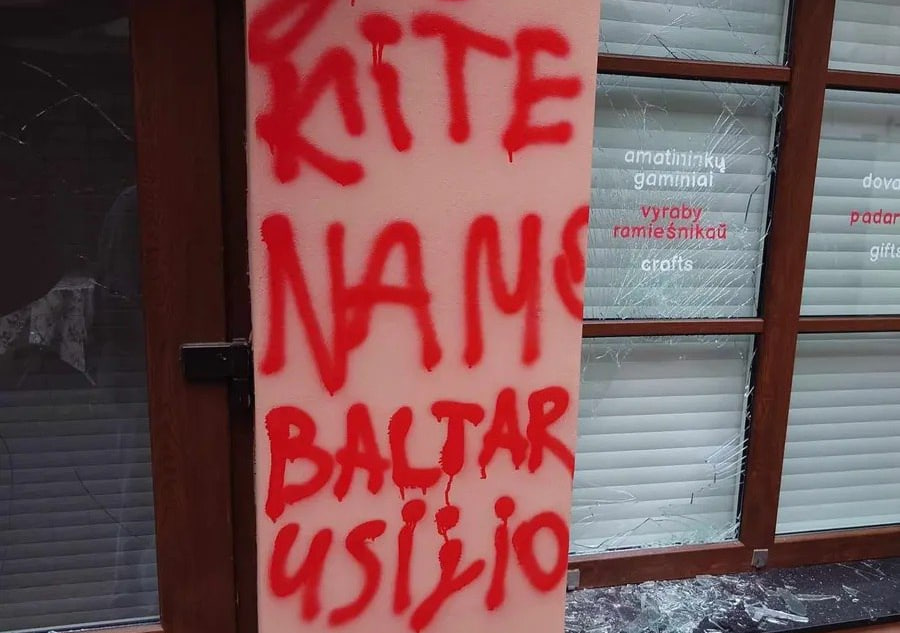 KiTE
NAMO
BALTAR
USijiO
amatininkų
gaminiai
vyraby
ramieśnikaŭ
crafts
dova
padar
gifts